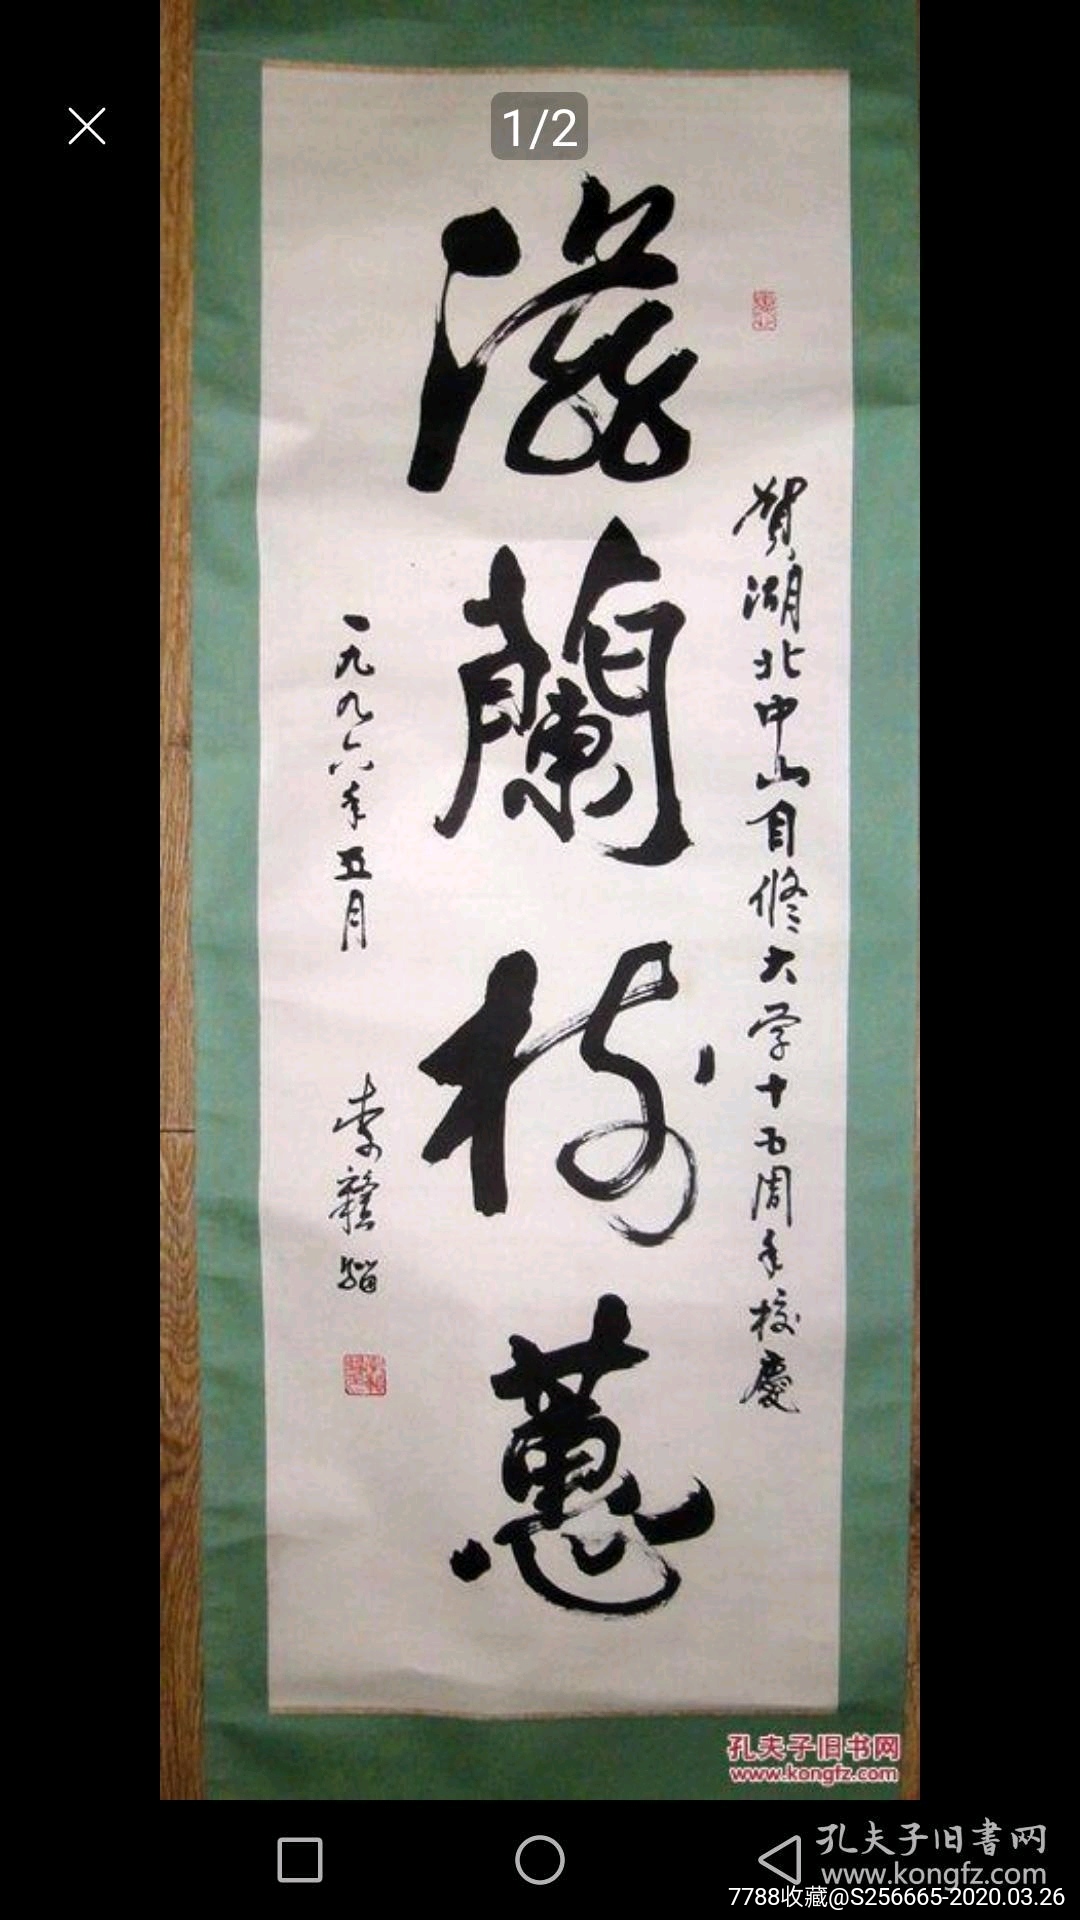 1/2
滋蘭樹蕙
贺湖北中山自修大学十五周年校慶
一九九六年五月
李赣骝
孔夫子旧书网
www.kongfz.com
孔夫子旧書网
www.kongfz.com
7788收藏@S256665-2020.03.26